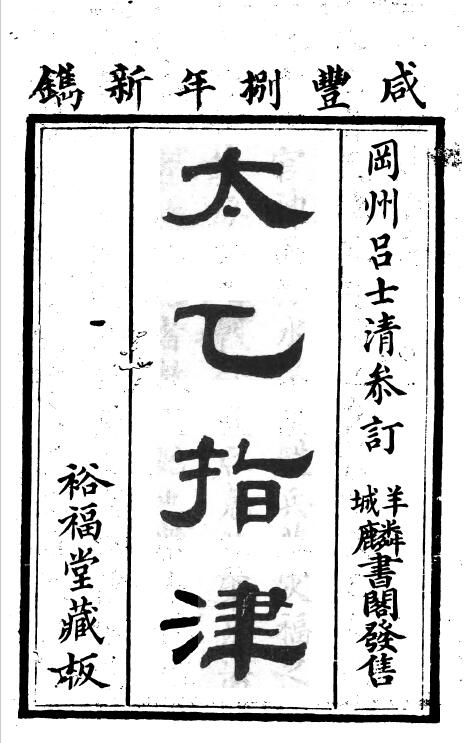 咸豐捌年新鐫
岡州呂士清叅訂
羊城麟書閣發售
太乙指津
裕福堂藏板